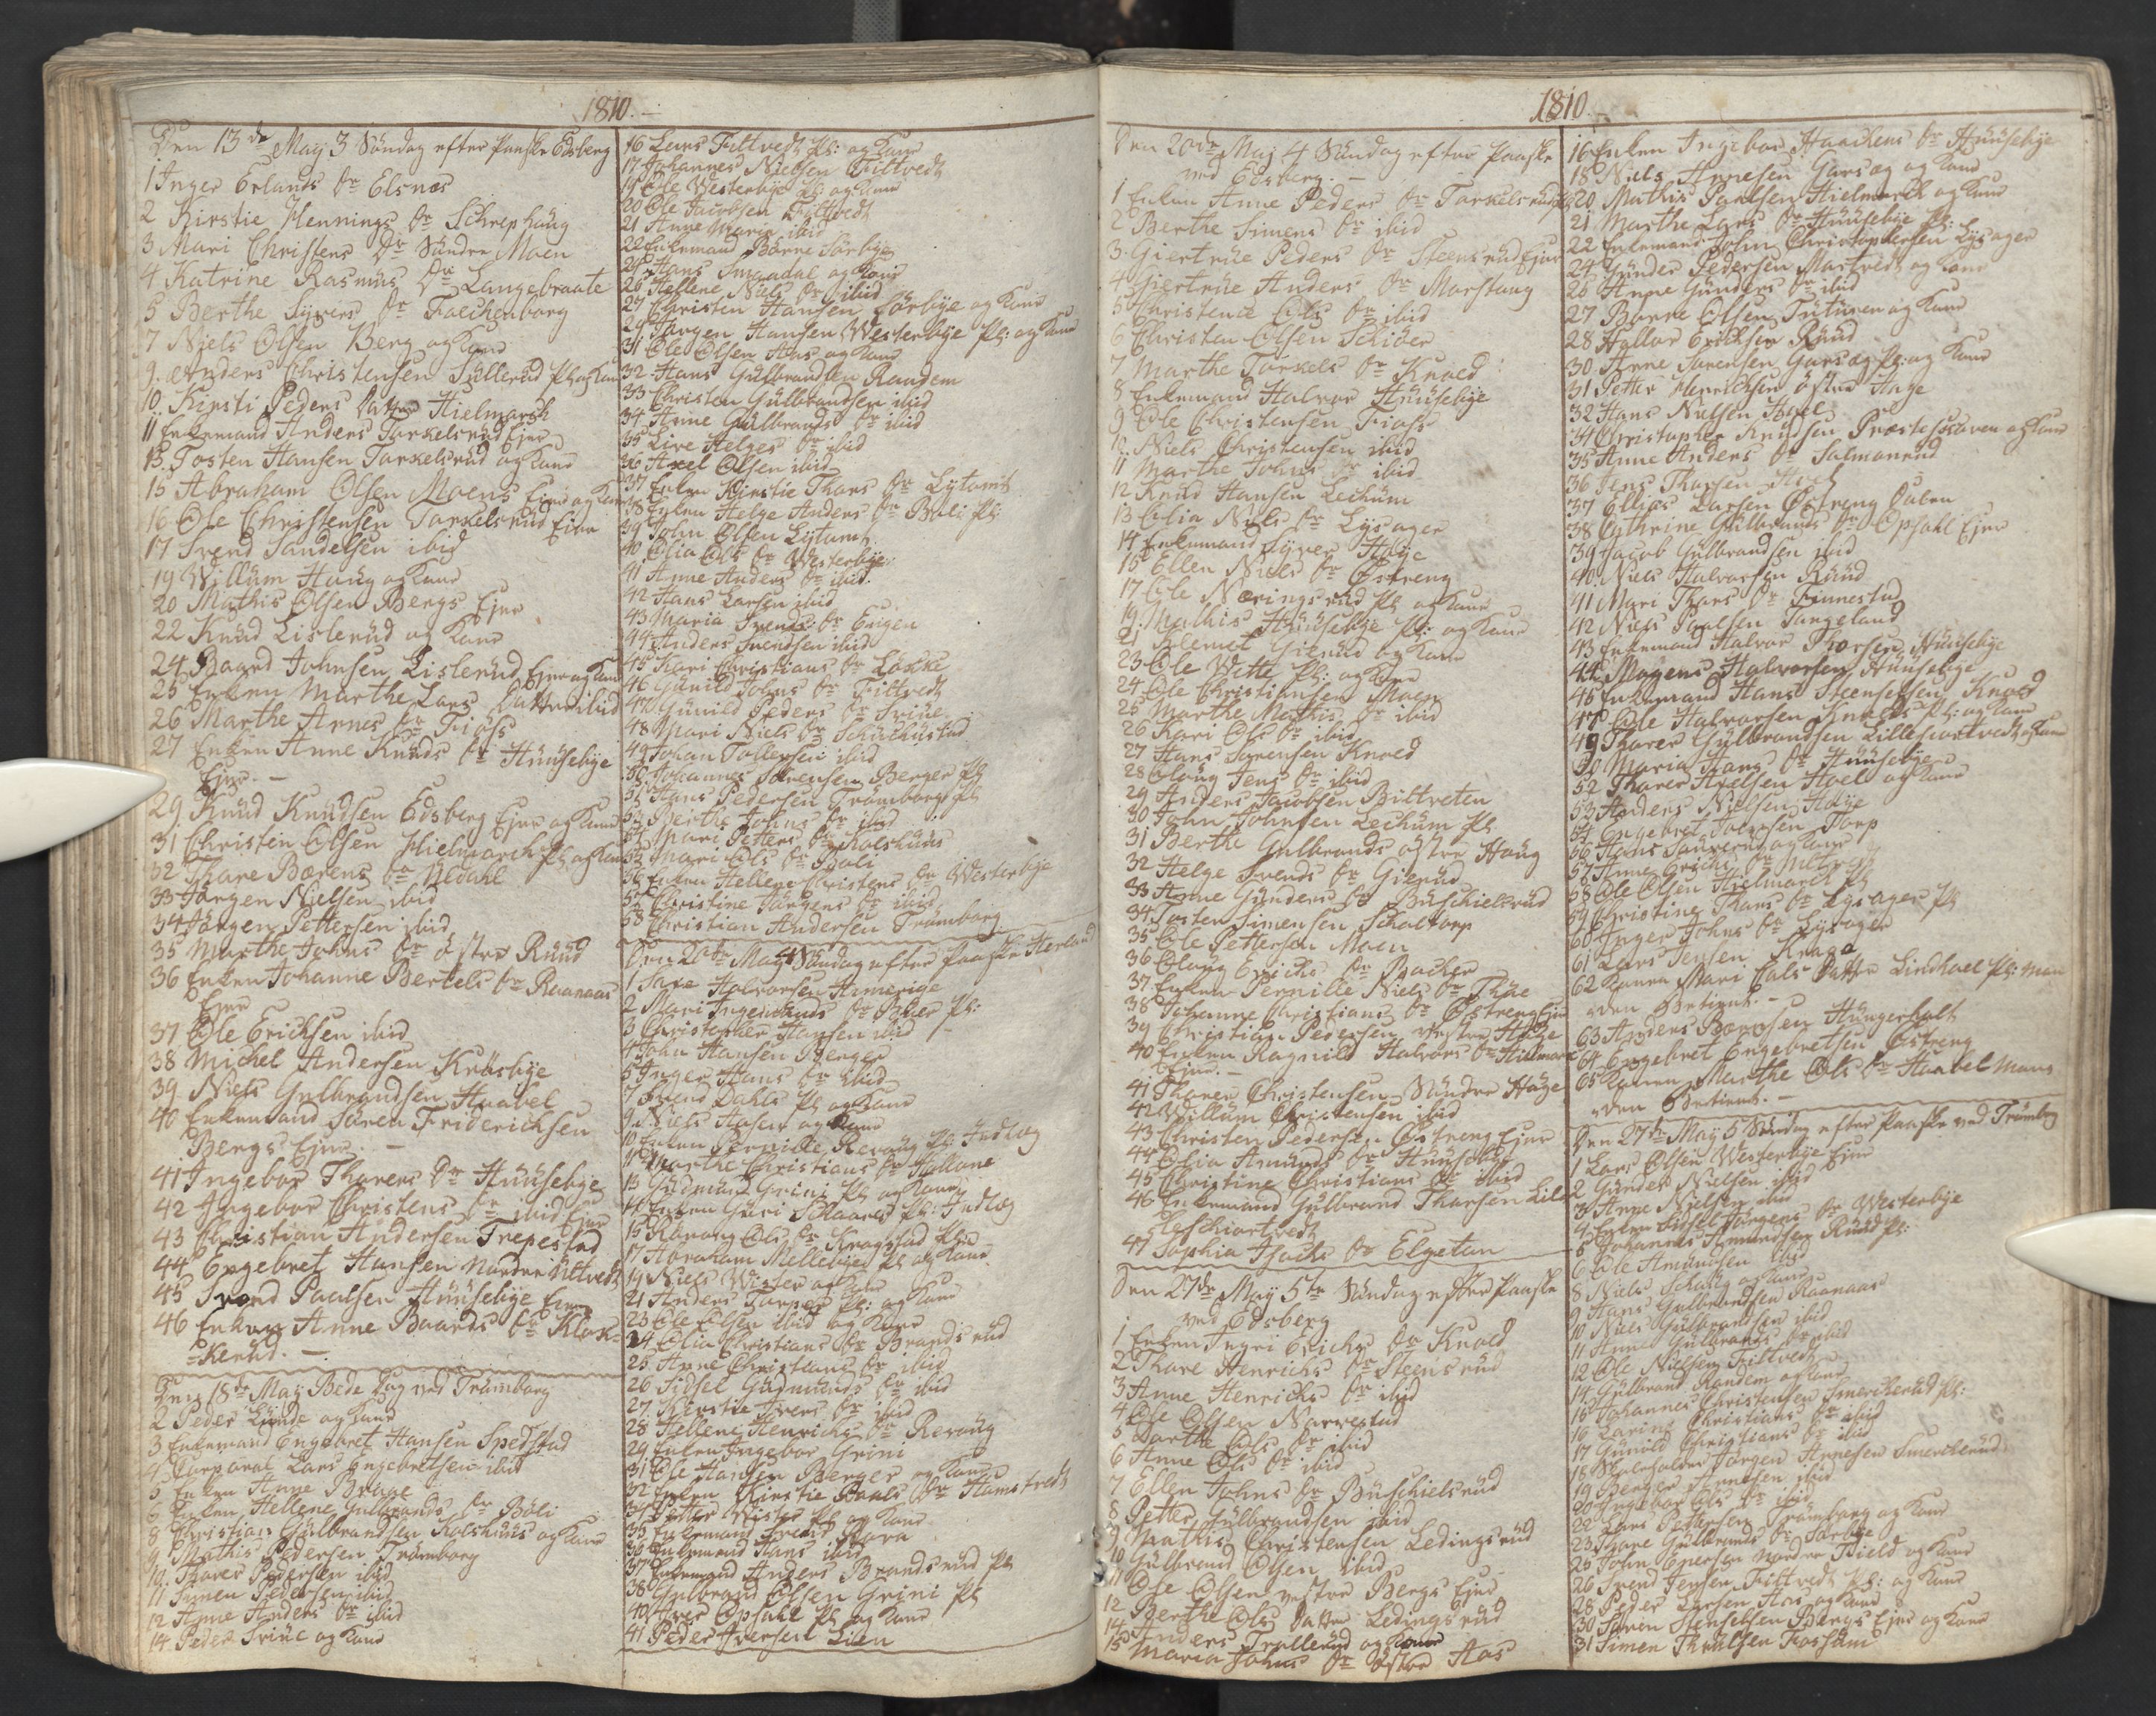 1810.
Den 13de May 3 Søndag efter Paaske Edsberg
1 Inger Erlands Dr Elsnes
2 Kirstie Hennings Dr Schrephaug
3 Mari Christens Dr Søndre Moen
4 Katrine Rasmus Dr Langebraate
5 Berthe Syvers Dr Faechenborg
7 Niels Olsen Berg og Kone
9. Anders Christensen Sullerud Pl: og Kone
10. Kirsti Peders Datter Hielmarch
11 Enkemand Anders Torkelsrud Ejer
13. Tosten Hansen Torkelsrud og Kone
15 Abraham Olsen Moens Ejer og Kone
16 Ole Christensen Torkelsrud Ejer
17 Svend Sandelsen ibid
19 Willum Haug og Kone
20 Mathis Olsen Bergs Ejer
22 Knud Lislerud og Kone
24 Baard Johnsen Lislerud Ejer og Kone
25 Enken Marthe Lars Datter ibid
26 Marthe Arnes Dr Fiøss
27 Enken Anne Knuds Dr Huusebye
Ejer. –
29 Knud Knudsen Edsberg Ejer og Kone
31 Christen Olsen Hielmarch Pl: og Kone
32 Thare Børens Dr Nedahl
33 Jørgen Nielsen ibid
34 Jørgen Pettersen ibid
35 Marthe Johns Dr østre Ruud
36 Enken Johanne Bertels Dr Raanaas
Ejer
37 Ole Erichsen ibid
38 Michel Andersen Krosbye
39 Niels Gulbrandsen Haabel
40 Enkemand Søren Friderichsen
Bergs Ejer. –
41 Ingebor Thorers Dr Huusebye
42 Ingebor Christens Dr ibid Ejer
43 Christian Andersen Trepestad
44 Engebret Hansen Nordre Ultvedt
45 Svend Paalsen Huusebye Ejer
46 Enken Anne Baards Dr Klok-
=kerud. –
Den 18de May Bede Dag ved Trømborg
2 Peder Lunde og Kone
3 Enkemand Engebret Hansen Spedstad
4 Corporal Lars Engebretsen ibid
5 Enken Anne Brage
6 Enken Hellene Gulbrands Dr Bøli
8 Christian Gulbrandsen Kolshuus og Kone
9. Mathis Pedersen Trømborg
10. Thorer Pedersen ibid
11 Simen Pedersen ibid
12 Anne Anders Dr ibid
14 Peder Friue og Kone
16 Lars Filtvedt Pl: og Kone
17 Johannes Nielsen Filtvedt
19 Ole Westerbye Pl: og Kone
20 Ole Jacobsen Filtvedt
21 Anne Maria ibid
22 Enkemand Børne Sørbye
24 Hans Smaadal og Kone
25 Hellene Niels Dr ibid
27 Christen Hansen Sørbye og Kone
29 Jørgen Hansen Westerbye Pl: og Kone
31 Ole Olsen Aas og Kone
32 Hans Gulbrandsen Raadem
33 Christen Gulbrandsen ibid
34 Anne Gulbrands Dr ibid
35 Live Helges Dr ibid
36 Axel Olsen ibid
37 Enken Kirstie Thors Dr Lytomt
38 Enken Helge Anders Dr Bøli Pl:
39 John Olsen Lytomt
40 Olia Ols Dr Westerbye
41 Anne Anders Dr ibid
42 Hans Larsen ibid
43 Maria Svends Dr Eugen
44 Anders Svendsen ibid
45 Kari Christians Dr Løkke
46 Gunild Johns Dr Filtvedt
47 Gunild Peders Dr Friue
48 Mari Niels Dr
49 Johan Tollefsen ibid
50 Johannes Sørensen Berger Pl
51 Hans Pedersen Trømborg Pl
52 Berthe Johns Dr ibid
54 Mari Petters Dr Kolshuus
55 Mari Ols Dr Bøli
56 Enken Hellene Christens Dr Westerbye
57 Christine Jørgens Dr ibid
58 Christian Andersen Trømborg
Den 20de May 4 Søndag efter Paaske Herland
1 Halvorsen
2 Mari Ingemunds Dr Pl:
3 Christopher Hansen ibid
4 John Hansen Berger
5 Inger Hans Dr ibid
7 Svend Dahls Pl og Kone
9. Niels Hasen og Kone
10 Enken Pernille Revoug Pl: Indlæg
11 Marthe Christians Dr
13 Gudmund Grini Pl og Kone
14 Enken Guri Schaared Pl: Indlæg
15 Ranoug Ols Dr Kragstad Pl:
17 Abraham Mellebyes Pl og Kone
19 Niels Wister og Kone
21 Anders Torper Pl: og Kone
23 Ole Olsen ibid og Kone
24 Olia Christians Dr Brandsrud
25 Anne Christians Dr ibid
26 Sidsel Gudmunds Dr ibid
27. Kirstie Ivers Dr ibid
28 Hellene Henrichs Dr Revoug
29 Enken Ingebor Grini
31 Ole Hansen Berger og Kone
32 Enken Kirstie Paals Dr Homstvedt
34 Petter Wister Pl og Kone
35 Enkemand Svend
36 Enkemand Hans ibid
37 Enkemand Anders Brandsrud Pl
38 Gulbrand Olsen Grini Pl
40 Iver Opsahl Pl og Kone
41 Peder Iversen Lien
1810
Den 20de Maj 4 Søndag efter Paaske
ved Edsberg. –
1 Enken Anne Peders Dr Torkelsrud
2 Berthe Simens Dr ibid
3 Giertrue Peders Dr Steensrud Ejer
4 Giertrue Anders Dr Morstang
5 Christence Ols Dr ibid
6 Christen Olsen Schider
7 Marthe Torkels Dr Knoed
8 Enkemand Halvor Huusebye
9 Ole Christensen Fiøss
10. Niels Christensen ibid
11 Marthe Johns Dr ibid
12 Knud Hansen Lechum
13 Olia Niels Dr Lysager
14 Enkemand Syver Høye
15 Ellen Niels Dr Østreng
17 Ole Nøringsrud Pl og Kone
19. Mathis Huusebye Pl: og Kone
21. Klemet Gierud og Kone
23 Ole Wette Pl: og Kone
24 Ole Christiansen Moen
25 Marthe Mathis Dr ibid
26 Kari Ols Dr ibid
27 Hans Sørensen Knoed
28 Oloug Jens Dr ibid
29 Anders Jacobsen Bittveten
30 John Johnsen Lechum Pl
31 Berthe Gulbrands østre Haug
32 Helge Svends Dr Gierud
33 Anne Gunders Dr Buschielsrud
34 Tosten Simensen Schaltorp
35 Ole Pettersen Moen
36 Oloug Erichs Dr Backer
37 Enken Pernille Niels Dr Thue
38 Johanne Christians Dr Østreng Ejer
39 Christian Pedersen vestre Høye
40 Enken Ragnild Halvors Dr Hielmarc
Ejer. –
41 Thorer Christensen Søndre Høye
42 Willum Christensen ibid
43 Christen Pedersen Østreng Ejer
44 Olia Amunds Dr Huusebye
45 Christine Christians Dr ibid
46 Enkemand Gulbrand Thorsen Lile
47 Sophia Isachs Dr Elgetun
Den 27de May 5te Søndag efter Paaske
ved Edsberg
1 Enken Ingri Erichs Dr Knold
2 Thore Henrichs Dr Steensrud
3 Anne Henrichs Dr ibid
4 Ole Olsen Narvestad
5 Dorthe Ols Dr ibid
6 Anne Ols Dr ibid
7 Ellen Johns Dr Buschielsrud
8 Petter Gulbrandsen ibid
9 Mathis Christensen Ledingsrud
10 Gulbrand Olsen ibid
11 Ole Olsen vestre Bergs Ejer
12 Berthe Ols Datter Ledingsrud
14 Anders Trollerud og Kone
15 Maren Johns Dr østre Aas
16 Enken Ingebor Haachens Dr Huusebye
18 Niels Arnesen Garseg og Kone
20 Mathis Paalsen Hielmarck og Kone
21 Marthe Lars Dr Huusebye Pl:
22 Enkemand John Christophersen Lysager
24 Gunder Pedersen Mortvedt og Kone
26 Anne Gunders Dr ibid
27 Børre Olsen Tuturen og Kone
28 Hallor Erichsen Ruud
30 Arne Sørensen Garseg Pl: og Kone
31 Petter Henrichsen østre Høye
32 Hans Nielsen Hoel
34 Christopher Knudsen Præsteskoven og Kone
35 Anne Anders Dr Salmonrud
36 Jens Thorsen
37 Ellias Larsen Østreng
38 Cathrine Gulbrands Dr Opsahl Ejer
39 Jacob Gulbrandsen ibid
40. Niels Halvorsen Ruud
41 Mari Thors Dr Finnestad
42 Niels Paalsen Tangeland
43 Enkemand Halvor Thorsen Huusebye
44 Mogens Halvorsen Huusebye
45 Enkemand Hans Steensesen Knold
47 Ole Halvorsen Pl: og Kone
49 Thorer Gulbrandsen Lilleskortvedt og Kone
50 Maria Hans Dr Huusebye
52 Thorer Axelsen Hoel og Kone
53 Anders Nielsen Høye
54 Engebret Torp
56 Hans og Kone
57 Anne Erichs Dr
58 Ole Olsen Hielmarch Pl
59 Christine Thors Dr Lysager Pl
60 Inger Johns Dr Lysager
61 Lars Jensen Krage
62 Konen Mari Ols Datter Lindhoel Pl: Man-
=den Betient. –
63 Anders Børresen Hungerholt
64 Engebret Engebretsen Østreng
65 Konen Marthe Ols Dr Haabel Man-
=den Betient. –
Den 27de May 5 Søndag efter Paaske ved Trømborg
1 Lars Olsen Westerbye Ejer
2 Gunder Nielsen ibid
3 Anne Nielsen ibid
4 Enken Sidsel Jørgens Dr Westerbye
5 Johannes Amundsen Ruud Pl:
6 Ole Amundsen ibid
8 Niels Schaug og Kone
9 Hans Gulbrandsen Raanaas
10 Niels Gulbrandsen ibid
11 Anne Gulbrands Dr ibid
12 Ole Nielsen Filtvedt
14 Gulbrand Raadem og Kone
15 Johannes Christensen Smerckerud Pl:
16 Karine Christians Dr ibid
17 Gunild Christians Dr ibid
18 Jørgen Arnesen Smerckerud
19 Berger Arnesen ibid
20 Ingebor Ols Dr ibid
22 Lars Pettersen Trømborg og Kone
23 Thore Gulbrands Dr Sørbye
25 John Ejersen Nordre Field og Kone
26 Svend Jensen Filtvedt Pl: og Kone
28 Peder Larsen Aas og Kone
30 Søren Stensesen Bergs Ejer og Kone
31 Simen Throlsen Fossum